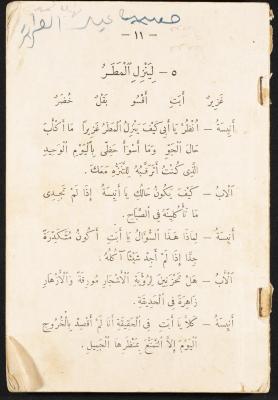 — ١١ —
٥ - لِيَنْزِلِ ٱلْمَطَرُ
غَزِيرٌ أَبَتِ أَقْسُو بَقْلٌ خُضَرٌ
أَنِيسَةُ — أُنْظُرْ يَا أَبِي كَيْفَ يَنْزِلُ ٱلْمَطَرُ غَزِيرًا مَا أَكْأَبَ
حَالَ ٱلْجَوِّ وَمَا أَسْوَأَ حَظِّي بِٱلْيَوْمِ ٱلْوَحِيدِ
الَّذِي كُنْتُ أَتَرَقَّبُهُ لِلتَّنَزُّهِ مَعَكَ.
ٱلْأَبُ — كَيْفَ يَكُونُ حَالُكِ يَا أَنِيسَةُ إِذَا لَمْ تَجِدِي
مَا تَأْكُلِينَهُ فِي ٱلصَّبَاحِ.
أَنِيسَةُ — لِمَاذَا هَذَا ٱلسُّؤَالُ يَا أَبَتِ أَكُونُ مُتَكَدِّرَةً
جِدًّا إِذَا لَمْ أَجِدْ شَيْئًا آكُلُهُ.
ٱلْأَبُ — هَلْ تَحْزَنِينَ لِرُؤْيَةِ ٱلْأَشْجَارِ مُورِقَةً وَٱلْأَزْهَارِ
زَاهِرَةً فِي ٱلْحَدِيقَةِ.
أَنِيسَةُ — كَلَّا يَا أَبَتِ فِي ٱلْحَقِيقَةِ أَنَا لَمْ أَقْصِدْ بِٱلْخُرُوجِ
ٱلْيَوْمَ إِلَّا ٱلتَّمَتُّعَ بِمَنْظَرِهَا ٱلْجَمِيلِ.